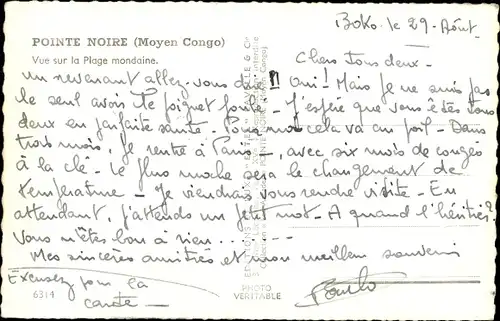 Boko. le 29. Août
POINTE NOIRE (Moyen Congo)
Vue sur la Plage mondaine.
Chers tous deux -
un revenant allez-vous dire!! Oui! Mais je ne suis pas
le seul avoir le poignet foulé - J'espère que vous êtes tous
deux en parfaite santé - Pour moi cela va au poil - Dans
trois mois, je rentre à Paris -, avec six mois de congés
à la clé - Le plus moche sera le changement de
température - Je viendrai vous rendre visite - En
attendant, j'attends un petit mot - A quand l'héritier?
Vous n'êtes bon à rien......
Mes sincères amitiés et mon meilleur souvenir
Excusez pour la
carte -
6314
PHOTO
VERITABLE